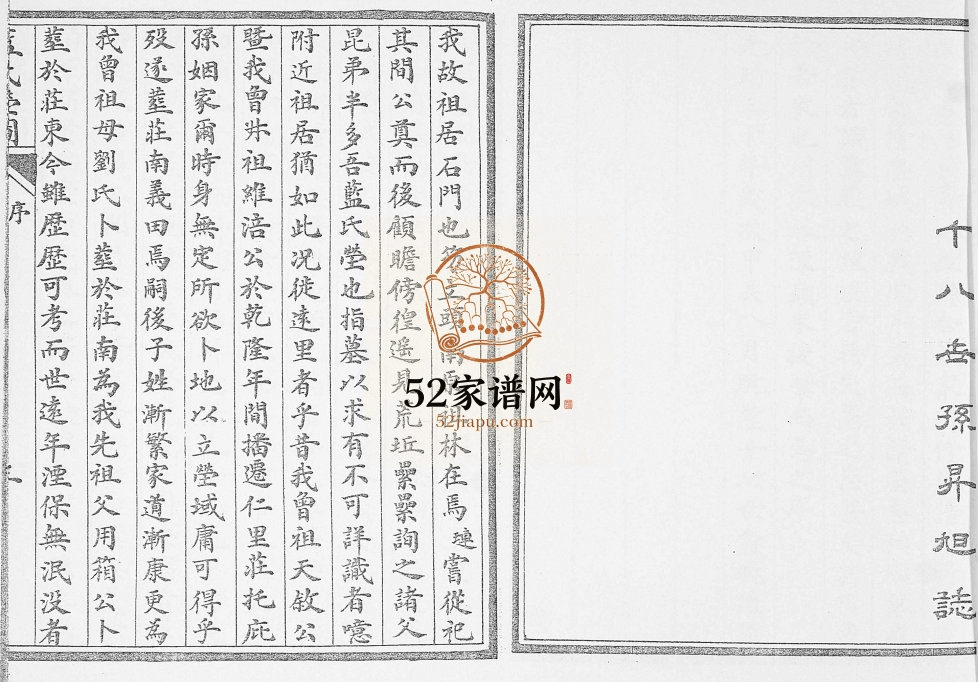 十八世孫昇旭誌
我故祖居石門也 頭南 林在焉璉嘗從祀
其間公奠而後顧瞻傍徨遥見荒坵纍纍詢之諸父
昆弟半多吾藍氏塋也指墓以求有不可詳識者噫
附近祖居猶如此况徙遠里者乎昔我曾祖天敘公
暨我曾叔祖維涪公於乾隆年間播遷仁里莊托庇
孫姻家爾時身無定所欲卜地以立塋域庸可得乎
殁遂塟莊南義田焉嗣後子姓漸繁家道漸康更為
我曾祖母劉氏卜塟於莊南為我先祖父用箱公卜
塟於莊東今雖歷歷可考而世遠年湮保無泯没者
序
52家谱网
52jiapu.com